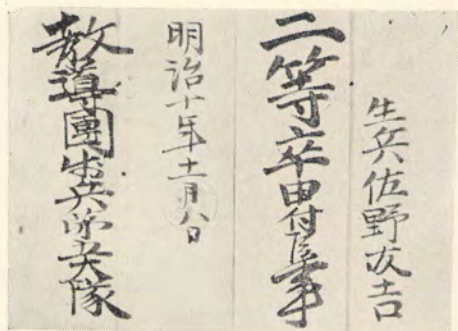 生兵佐野友吉
二等卒申付候事
明治十年十二月八日
教導團歩兵第弐大隊